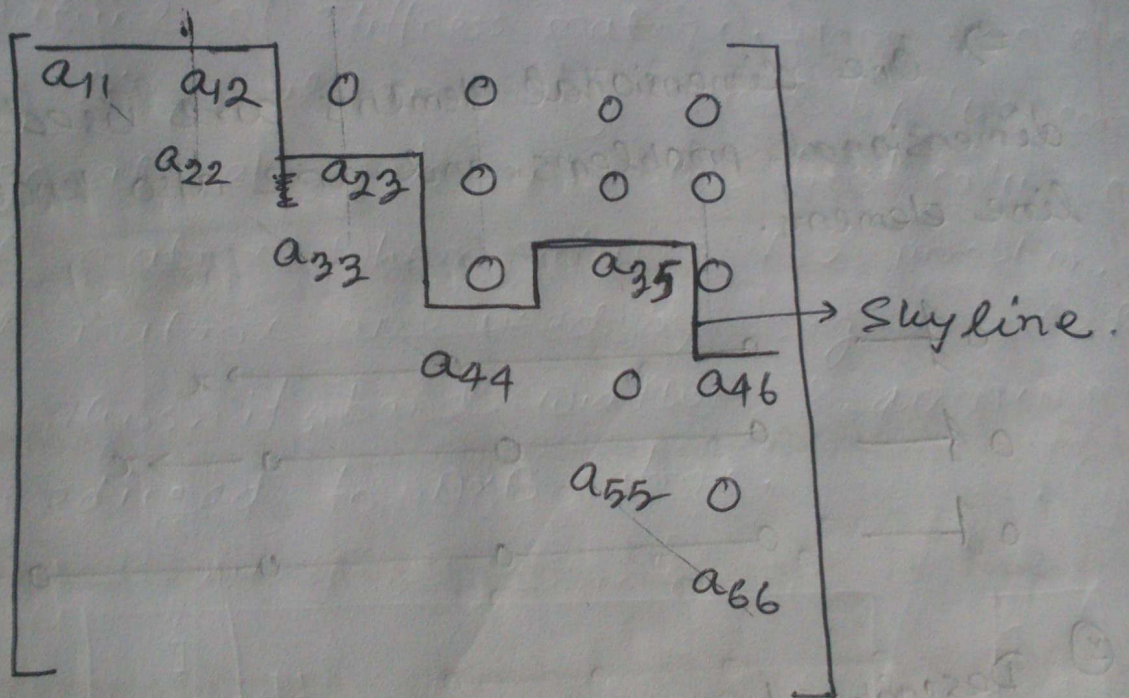 a11 a12 0 0 0 0
a22 a23 0 0 0
a33 0 a35 0
Skyline.
a44 0 a46
a55 0
a66